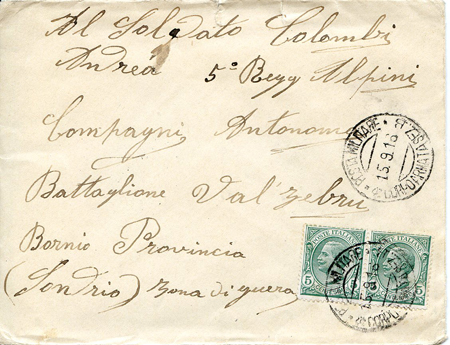 Al Soldato Colombi
Andrea 5° Regg Alpini
Compagni Autonoma
Battaglione Val'zebru
Bornio Provincia
(Sondrio) Zona di guera
POSTA MILITARE
15.9.16
POSTE ITALIANE POSTE ITALIANE
5
MILITARE